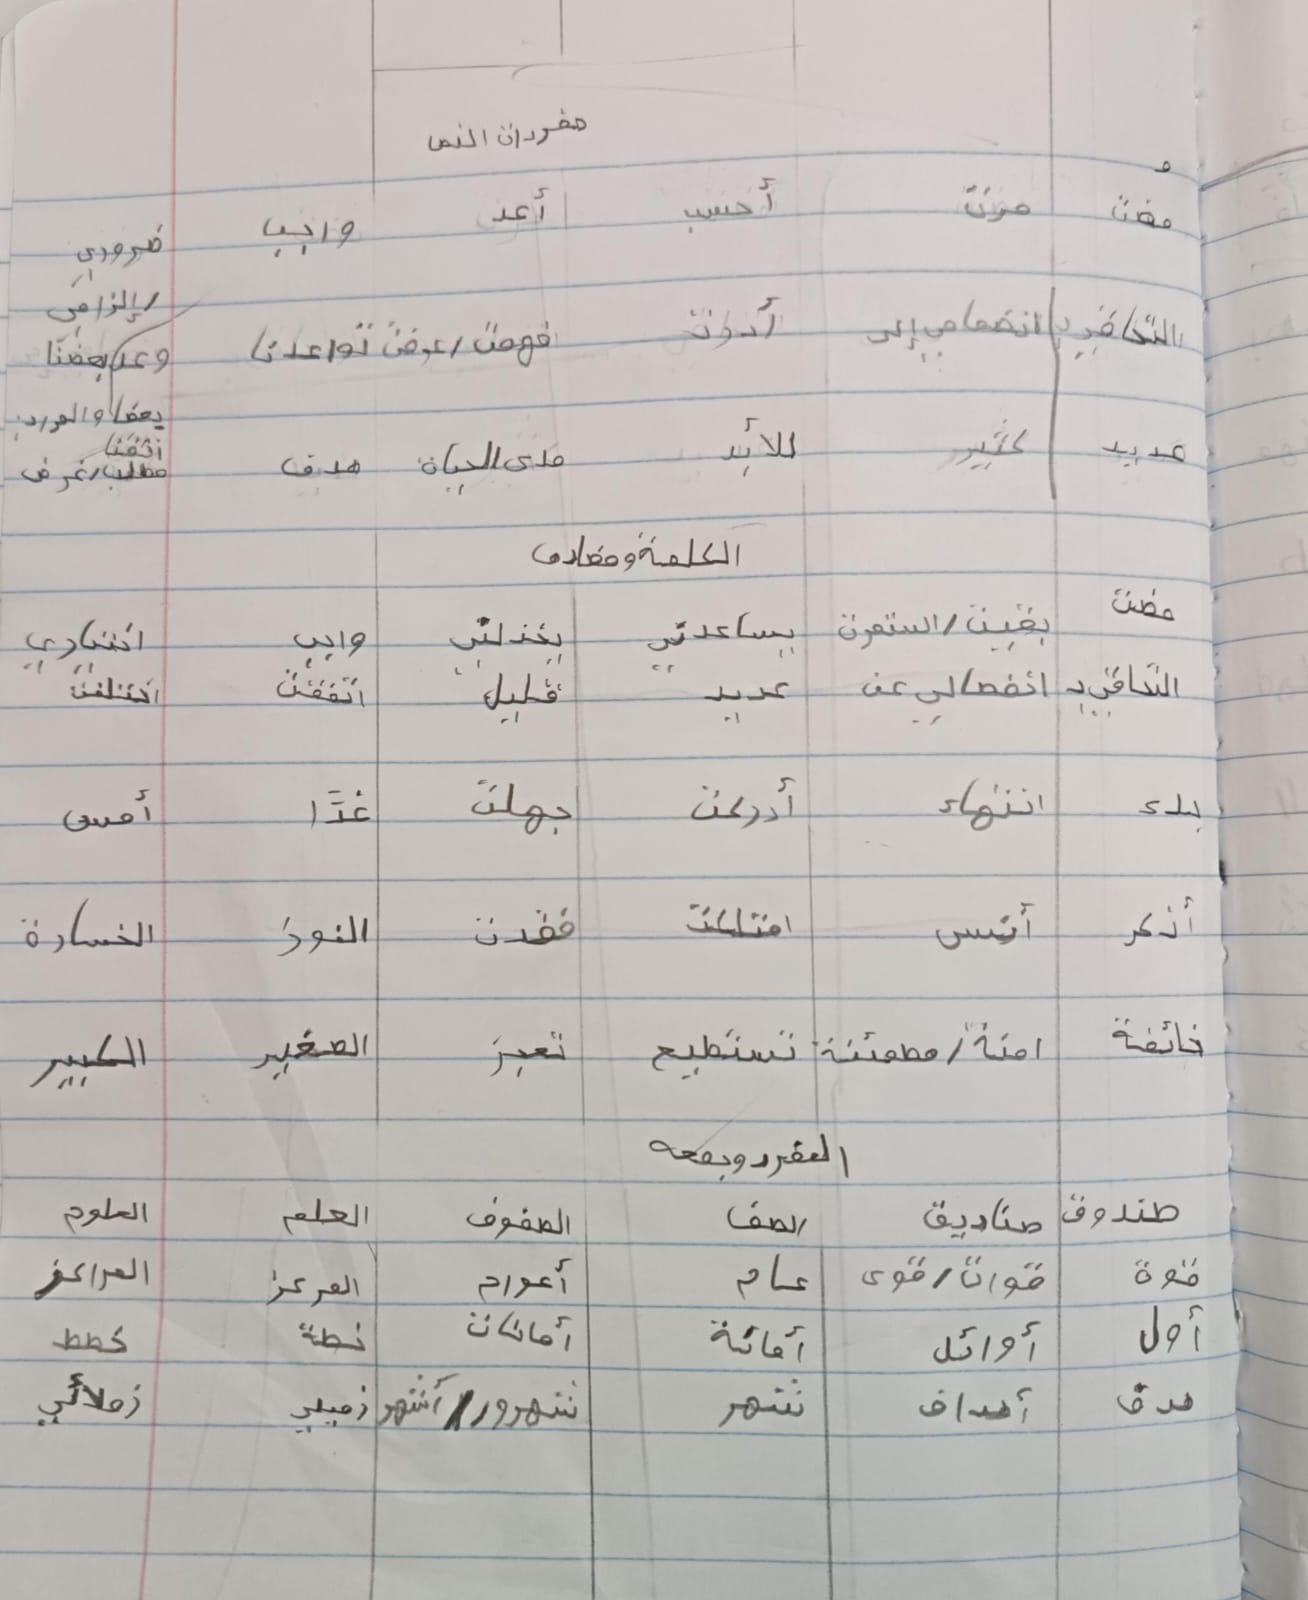 مفردات النص
مضت مرت أحسب أعد واجب ضروري
/إلزامي
التحاقي بـ انضمامي إلى أدركت فهمت/عرفت تواعدنا وعد بعضنا
بعضا والمراد:
اتفقنا
عديد كثير للأبد مدى الحياة هدف مطلب/غرض
الكلمة ومضادها
مضت بقيت/استمرت يساعدني يخذلني واجب اختياري
التحاقي بـ انفصالي عن عديد قليل اتفقت اختلفت
بدء انتهاء أدركت جهلت غدًا أمس
أذكر أنسى امتلكت فقدت الفوز الخسارة
خائفة امنة/مطمئنة تستطيع تعجز الصغير الكبير
المفرد وجمعه
صندوق صناديق الصف الصفوف العلم العلوم
قوة قوات/قوى عام أعوام المركز المراكز
أول أوائل أمانة أمانات خطة خطط
هدف أهداف شهر شهور/أشهر زميلي زملائي